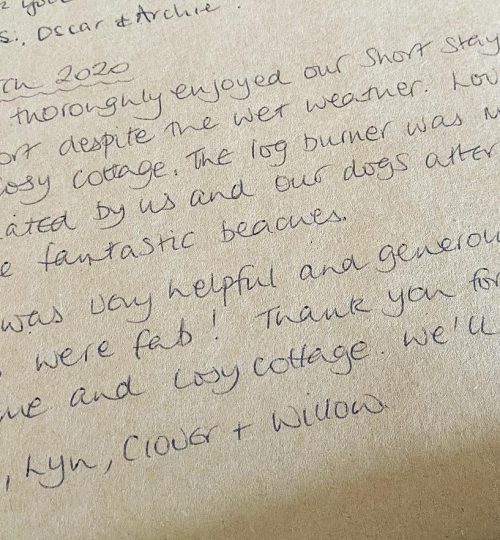 s:, Oscar & Archie.
ch 2020
thoroughly enjoyed our short stay
ort despite the wet weather. Lov
cosy cottage. The log burner was m
ated by us and our dogs after
e fantastic beaches.
was very helpful and generou
were fab! Thank you for
me and cosy cottage. We'll
, Lyn, Clover + Willow